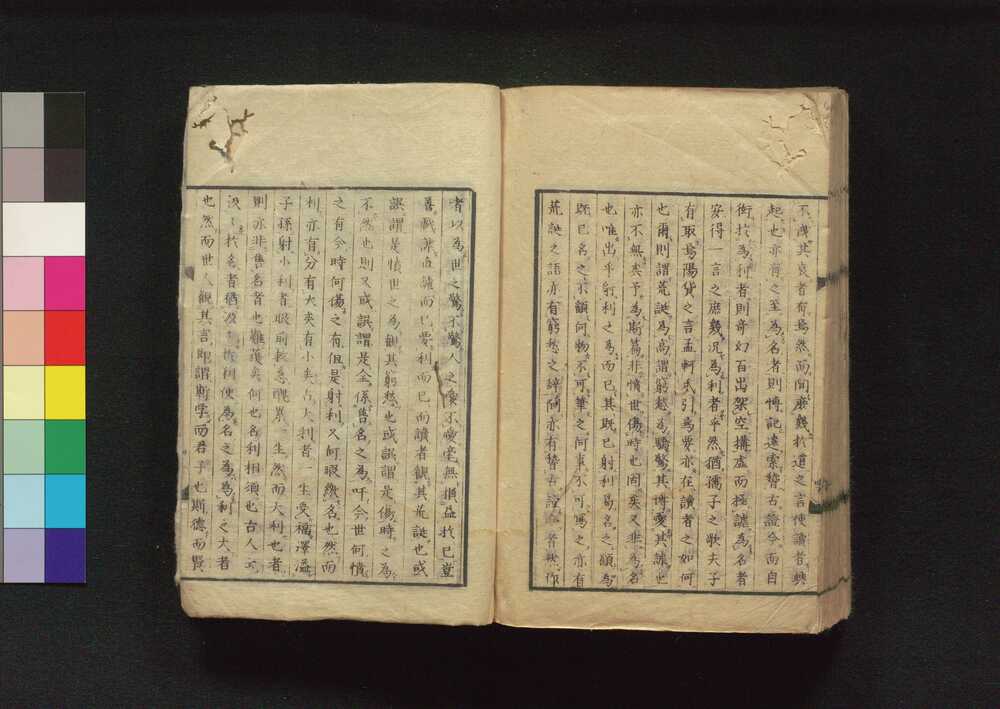 不識其哀者有焉然而間庶幾於道之言使讀者興
起也亦有之至為名者則博記遠索贄古證今而自
衒於為利者則奇幻百出架空搆虛而極謔為名者
安得一言之庶幾況為利者乎然猶孺子之歌夫子
有取焉陽貨之言孟軻氏引焉要亦在讀者之如何
也爾則謂荒誕為高謂窮愁為驕驚其博愛其謔也
亦不無矣予為斯篇非憤世傷時也固矣又非為名
也唯出乎射利之為而已其既已射利易名之顧為
既已名之不顧何物不可筆之何事不可寫之亦有
荒誕之語亦有窮愁之辭間亦有贄古證今者然作
者以為世之驚不驚人之愛不愛毫無損益於已豈
善戲謔直謔而已要利而已而讀者觀其荒誕也或
誤謂是憤世之為觀其窮愁也或誤謂是傷時之為
不然也則又或誤謂是全係售名之為吁今世何憤
之有今時何傷之有但是射利又何暇釣名也然而
利亦有分有大矣有小矣占大利者一生受福澤溢
子孫射小利者眼前核急醜累一生然而大利也者
則亦非售名者也難獲矣何也名利相須也古人云
汲〻於名者猶汲〻於利使為名之為為利之大者
也然而世人觀其言即謂斯學而君子也斯德而賢